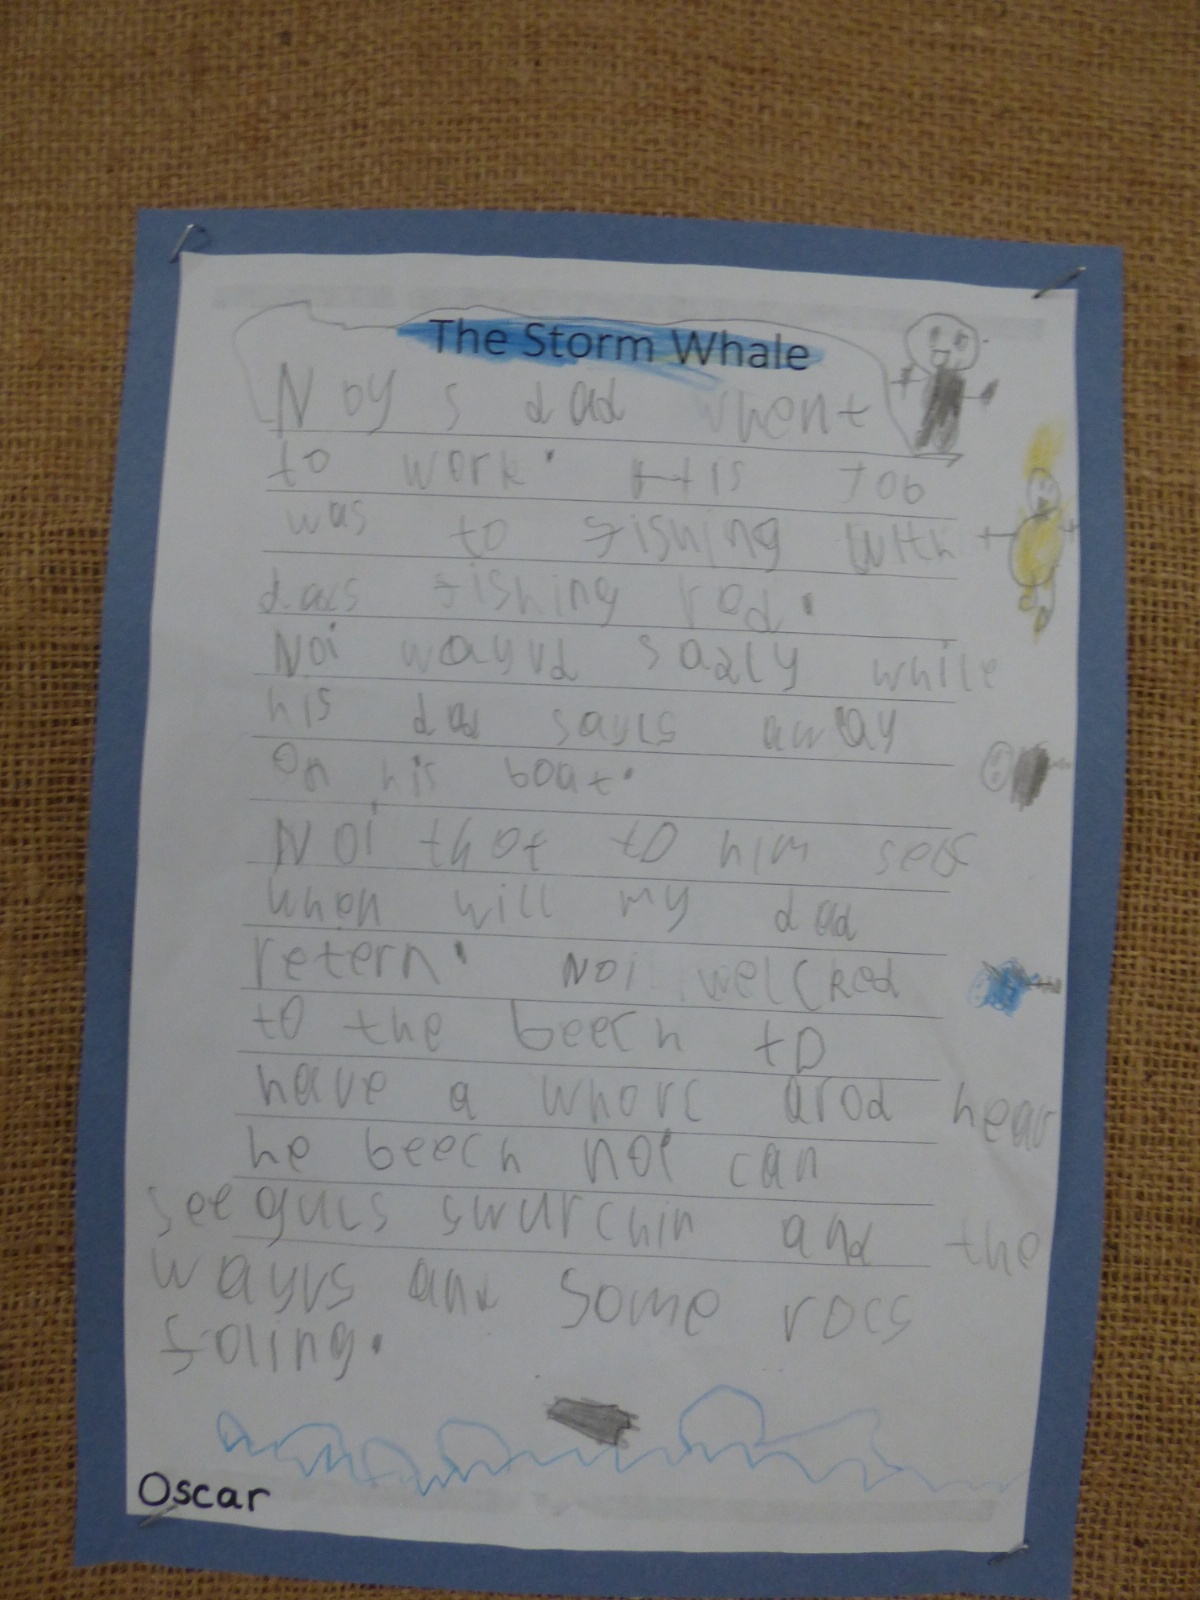 The Storm Whale
Noy s dad whent
to work. His Job
was to fishing with
dads fishing rod.
Noi wayvd sadly while
his dad sayls away
on his boat.
Noi thot to him self
when will my dad
retern. Noi welcked
to the beech to
have a whorc arod hear
he beech noi can
seeguls swurchin and the
wayvs and some rocs
foling.
Oscar